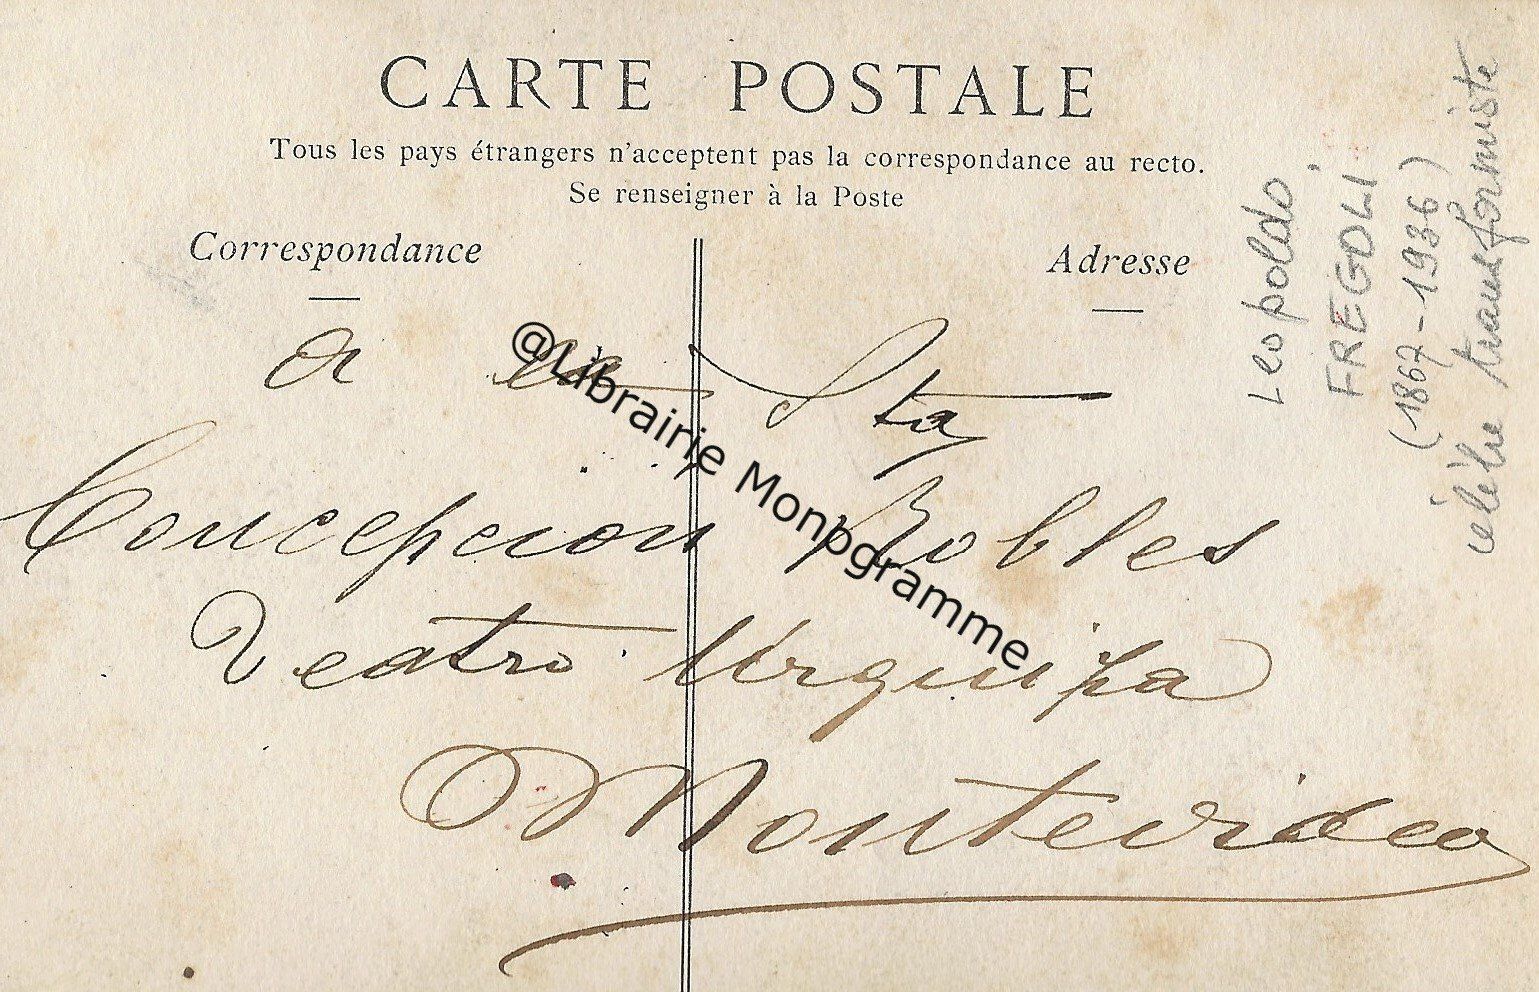 CARTE POSTALE
Tous les pays étrangers n'acceptent pas la correspondance au recto.
Se renseigner à la Poste
Correspondance
Adresse
a Sta
Concepcion Robles
Teatro Urquiza
Montevideo
Leopoldo
FREGOLI
(1867-1936)
célèbre transformiste
@Librairie Monogramme